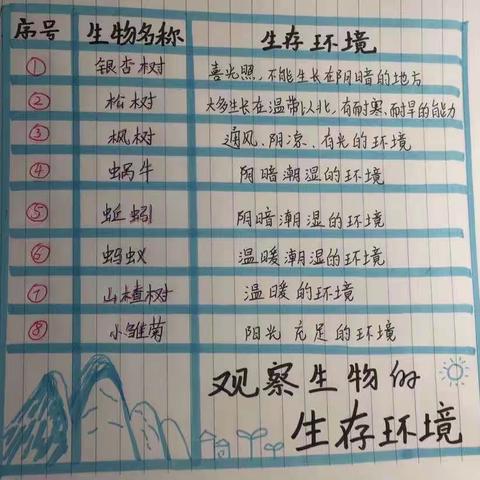 序号 生物名称 生存环境
① 银杏树 喜光照,不能生长在阴暗的地方
② 松树 大多生长在温带以北,有耐寒、耐旱的能力
③ 枫树 通风、阴凉、有光的环境
④ 蜗牛 阴暗潮湿的环境
⑤ 蚯蚓 阴暗潮湿的环境
⑥ 蚂蚁 温暖潮湿的环境
⑦ 山楂树 温暖的环境
⑧ 小雏菊 阳光充足的环境
观察生物的
生存环境